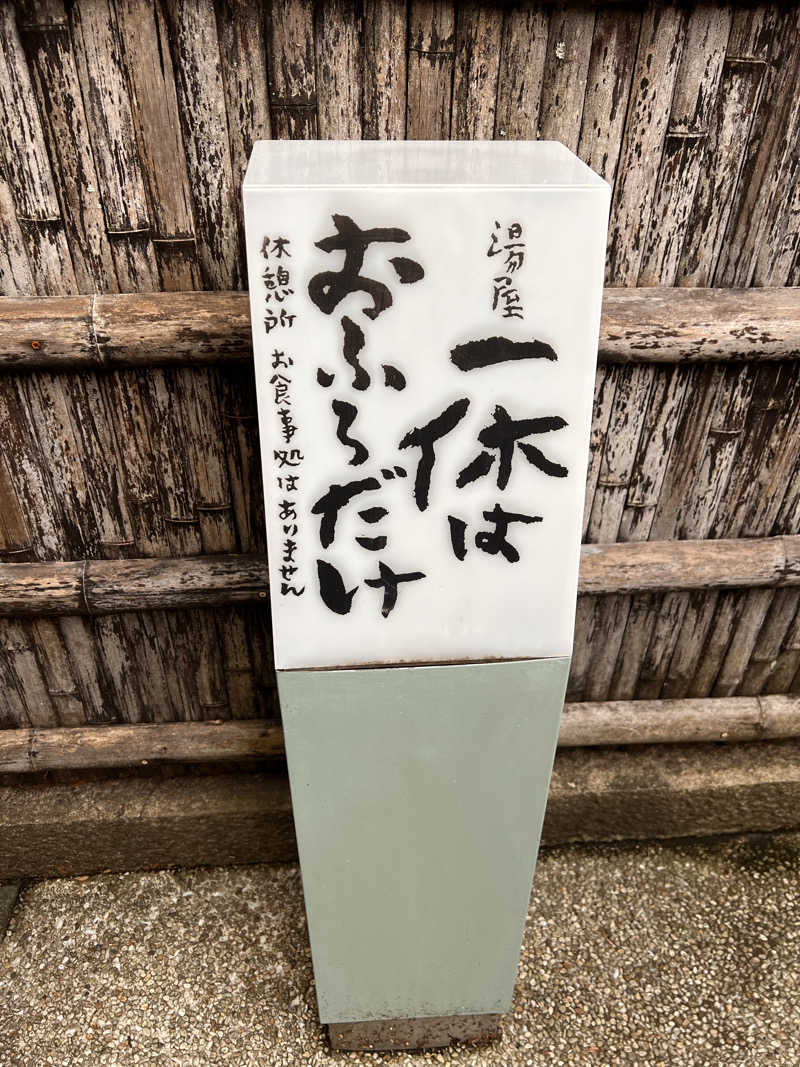 湯屋
一休は
おふろだけ
休憩所 お食事処はありません